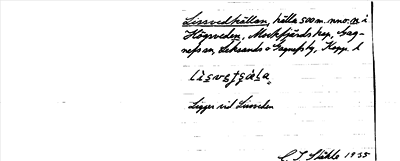 Lissvedkällan, källa 500 m. nno. om i
Högsveden, Mockfjärds kap., Gag-
nefs sn, Leksands o Gagnefs tg, Kopp. l
Ligger vid Lissveden
C. I. Ståhle 1935